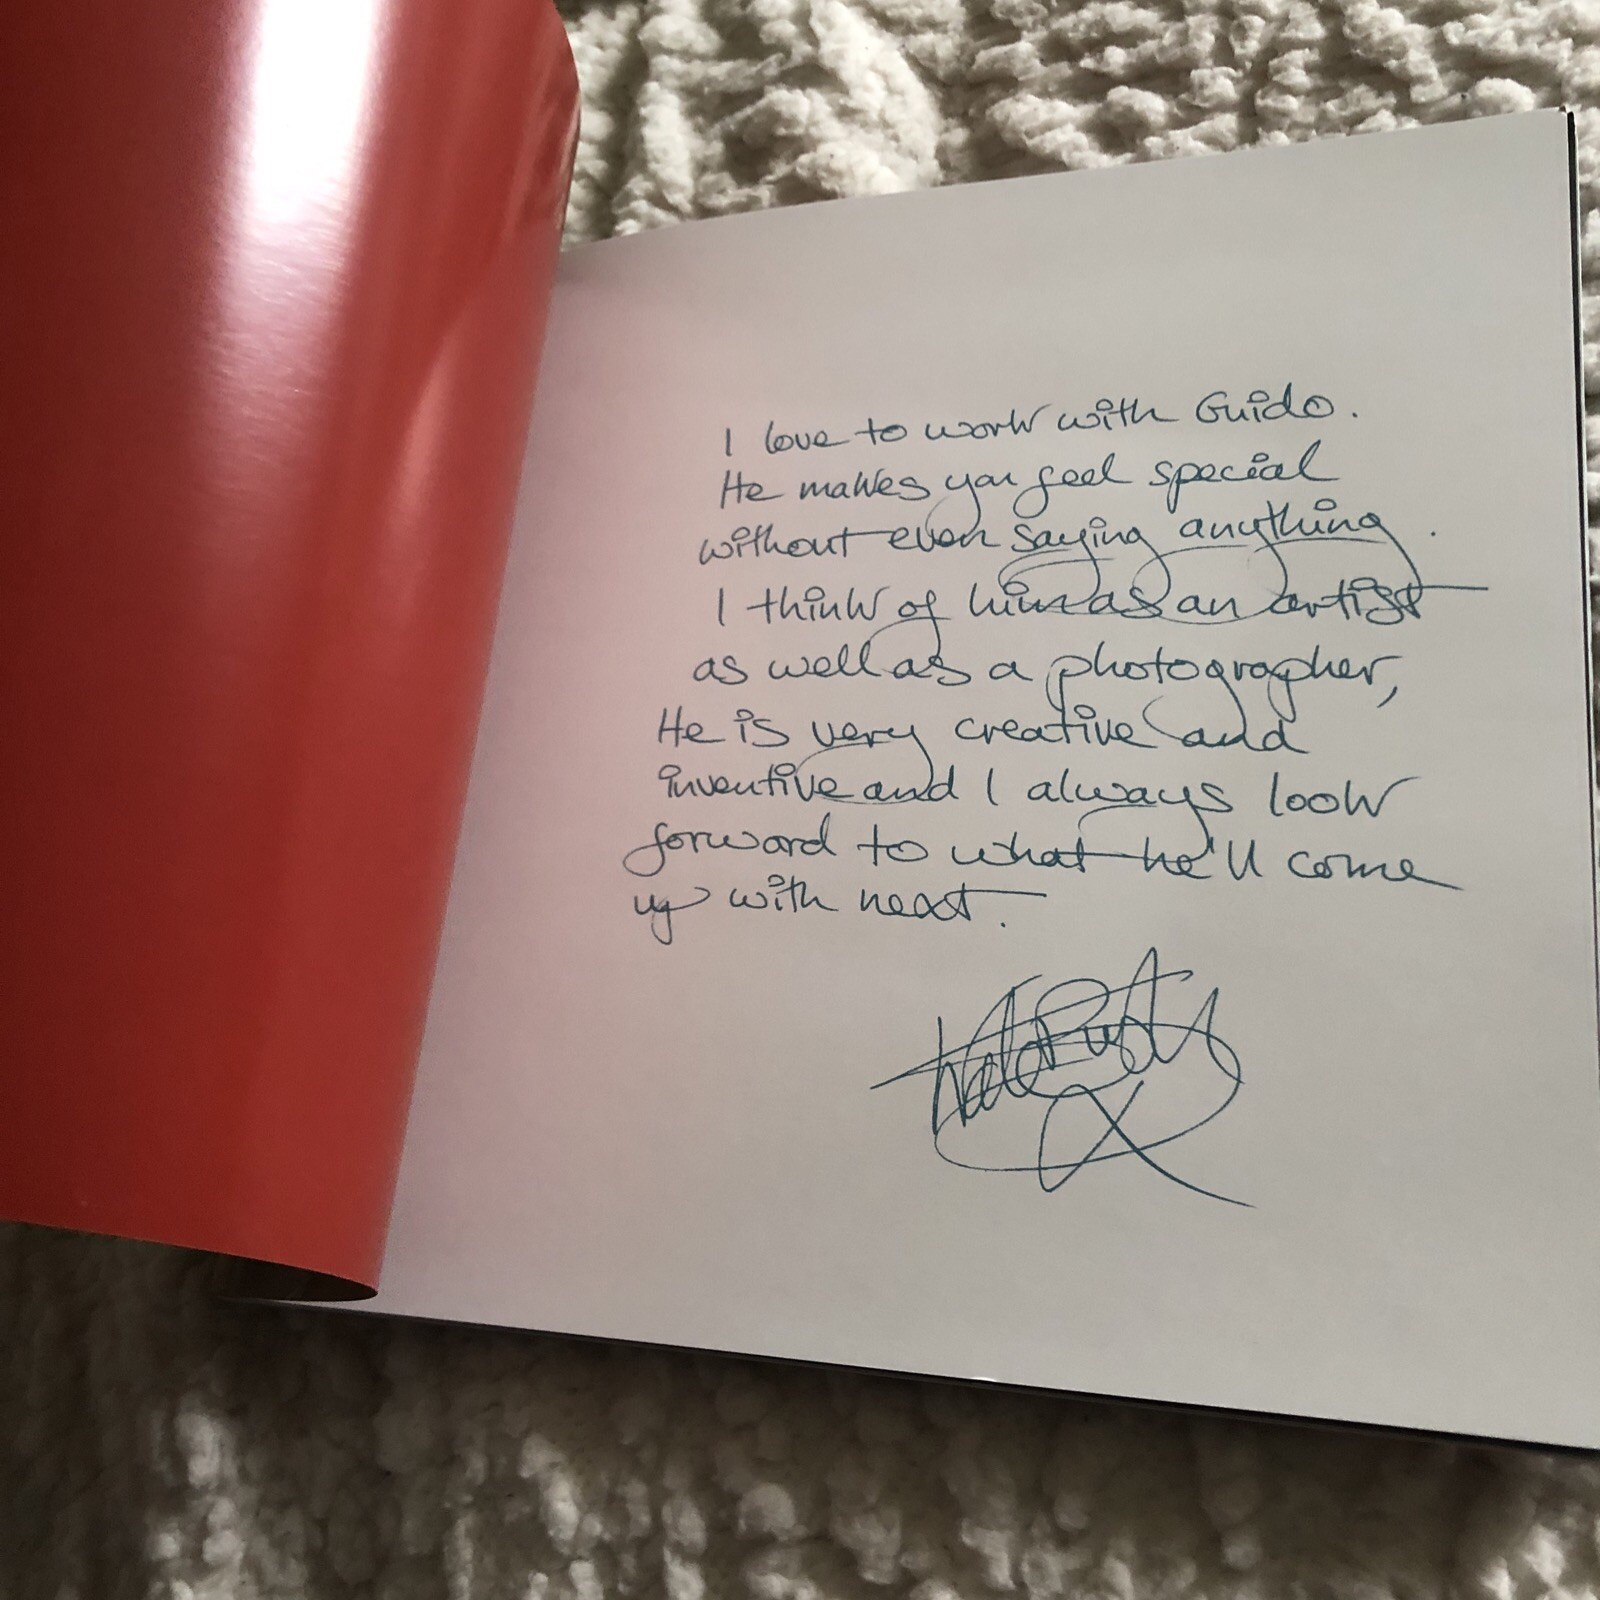 I love to work with Guido.
He makes you feel special
without even saying anything.
I think of him as an artist
as well as a photographer,
He is very creative and
inventive and I always look
forward to what he'll come
up with next.
Kate Bush
X